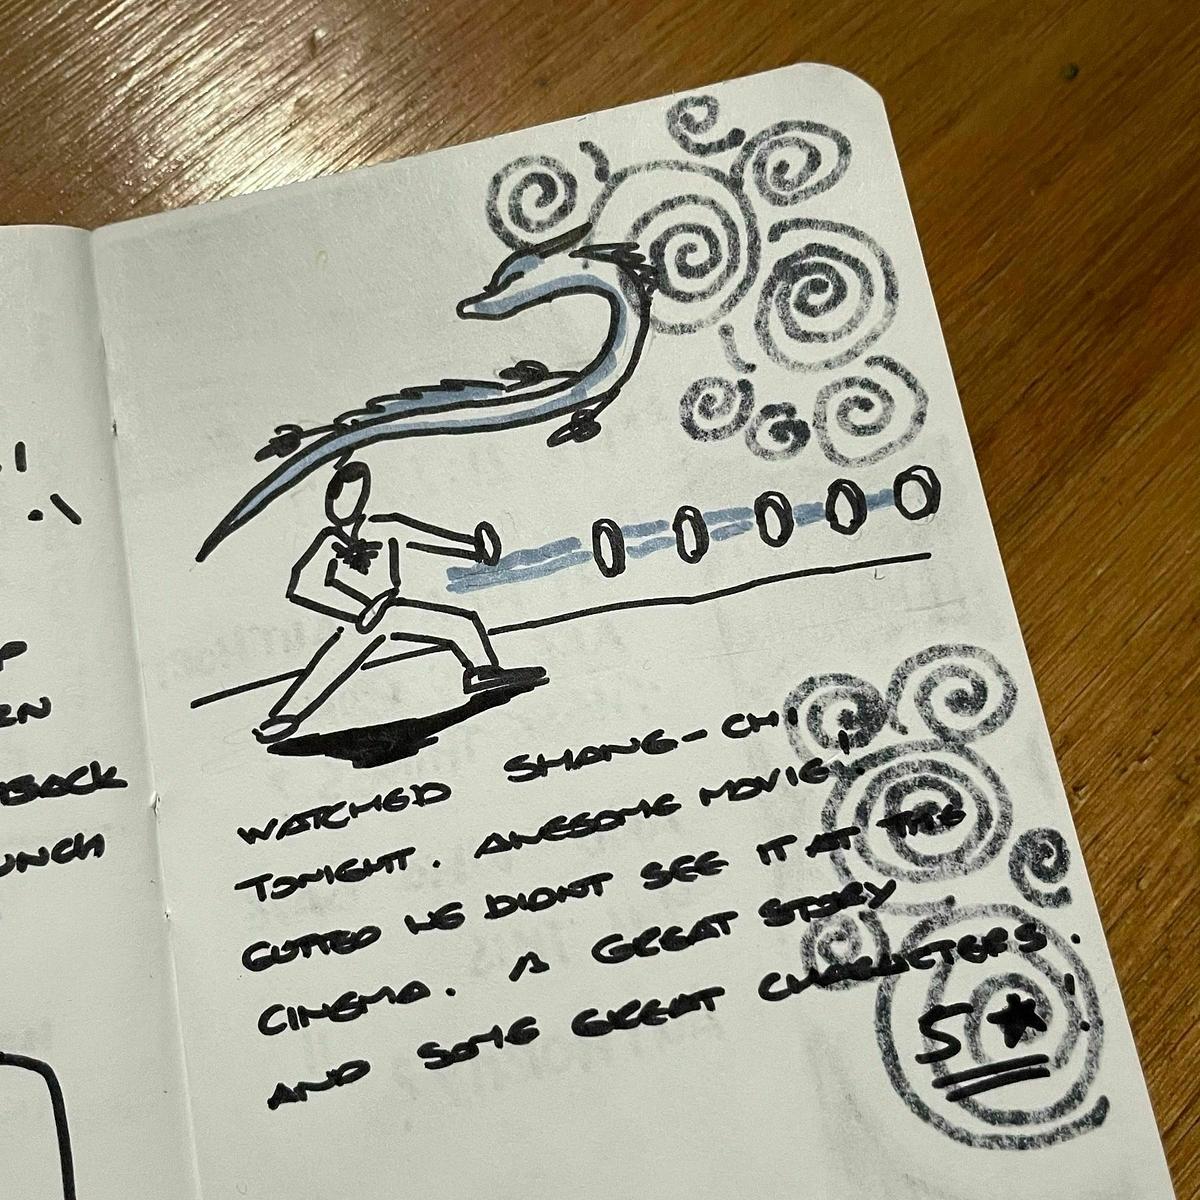 WATCHED SHANG-CHI
TONIGHT. AWESOME MOVIE!
GUTTED WE DIDNT SEE IT AT THE
CINEMA. A GREAT STORY
AND SOME GREAT CHARACTERS.
5★!
BACK
UNCH